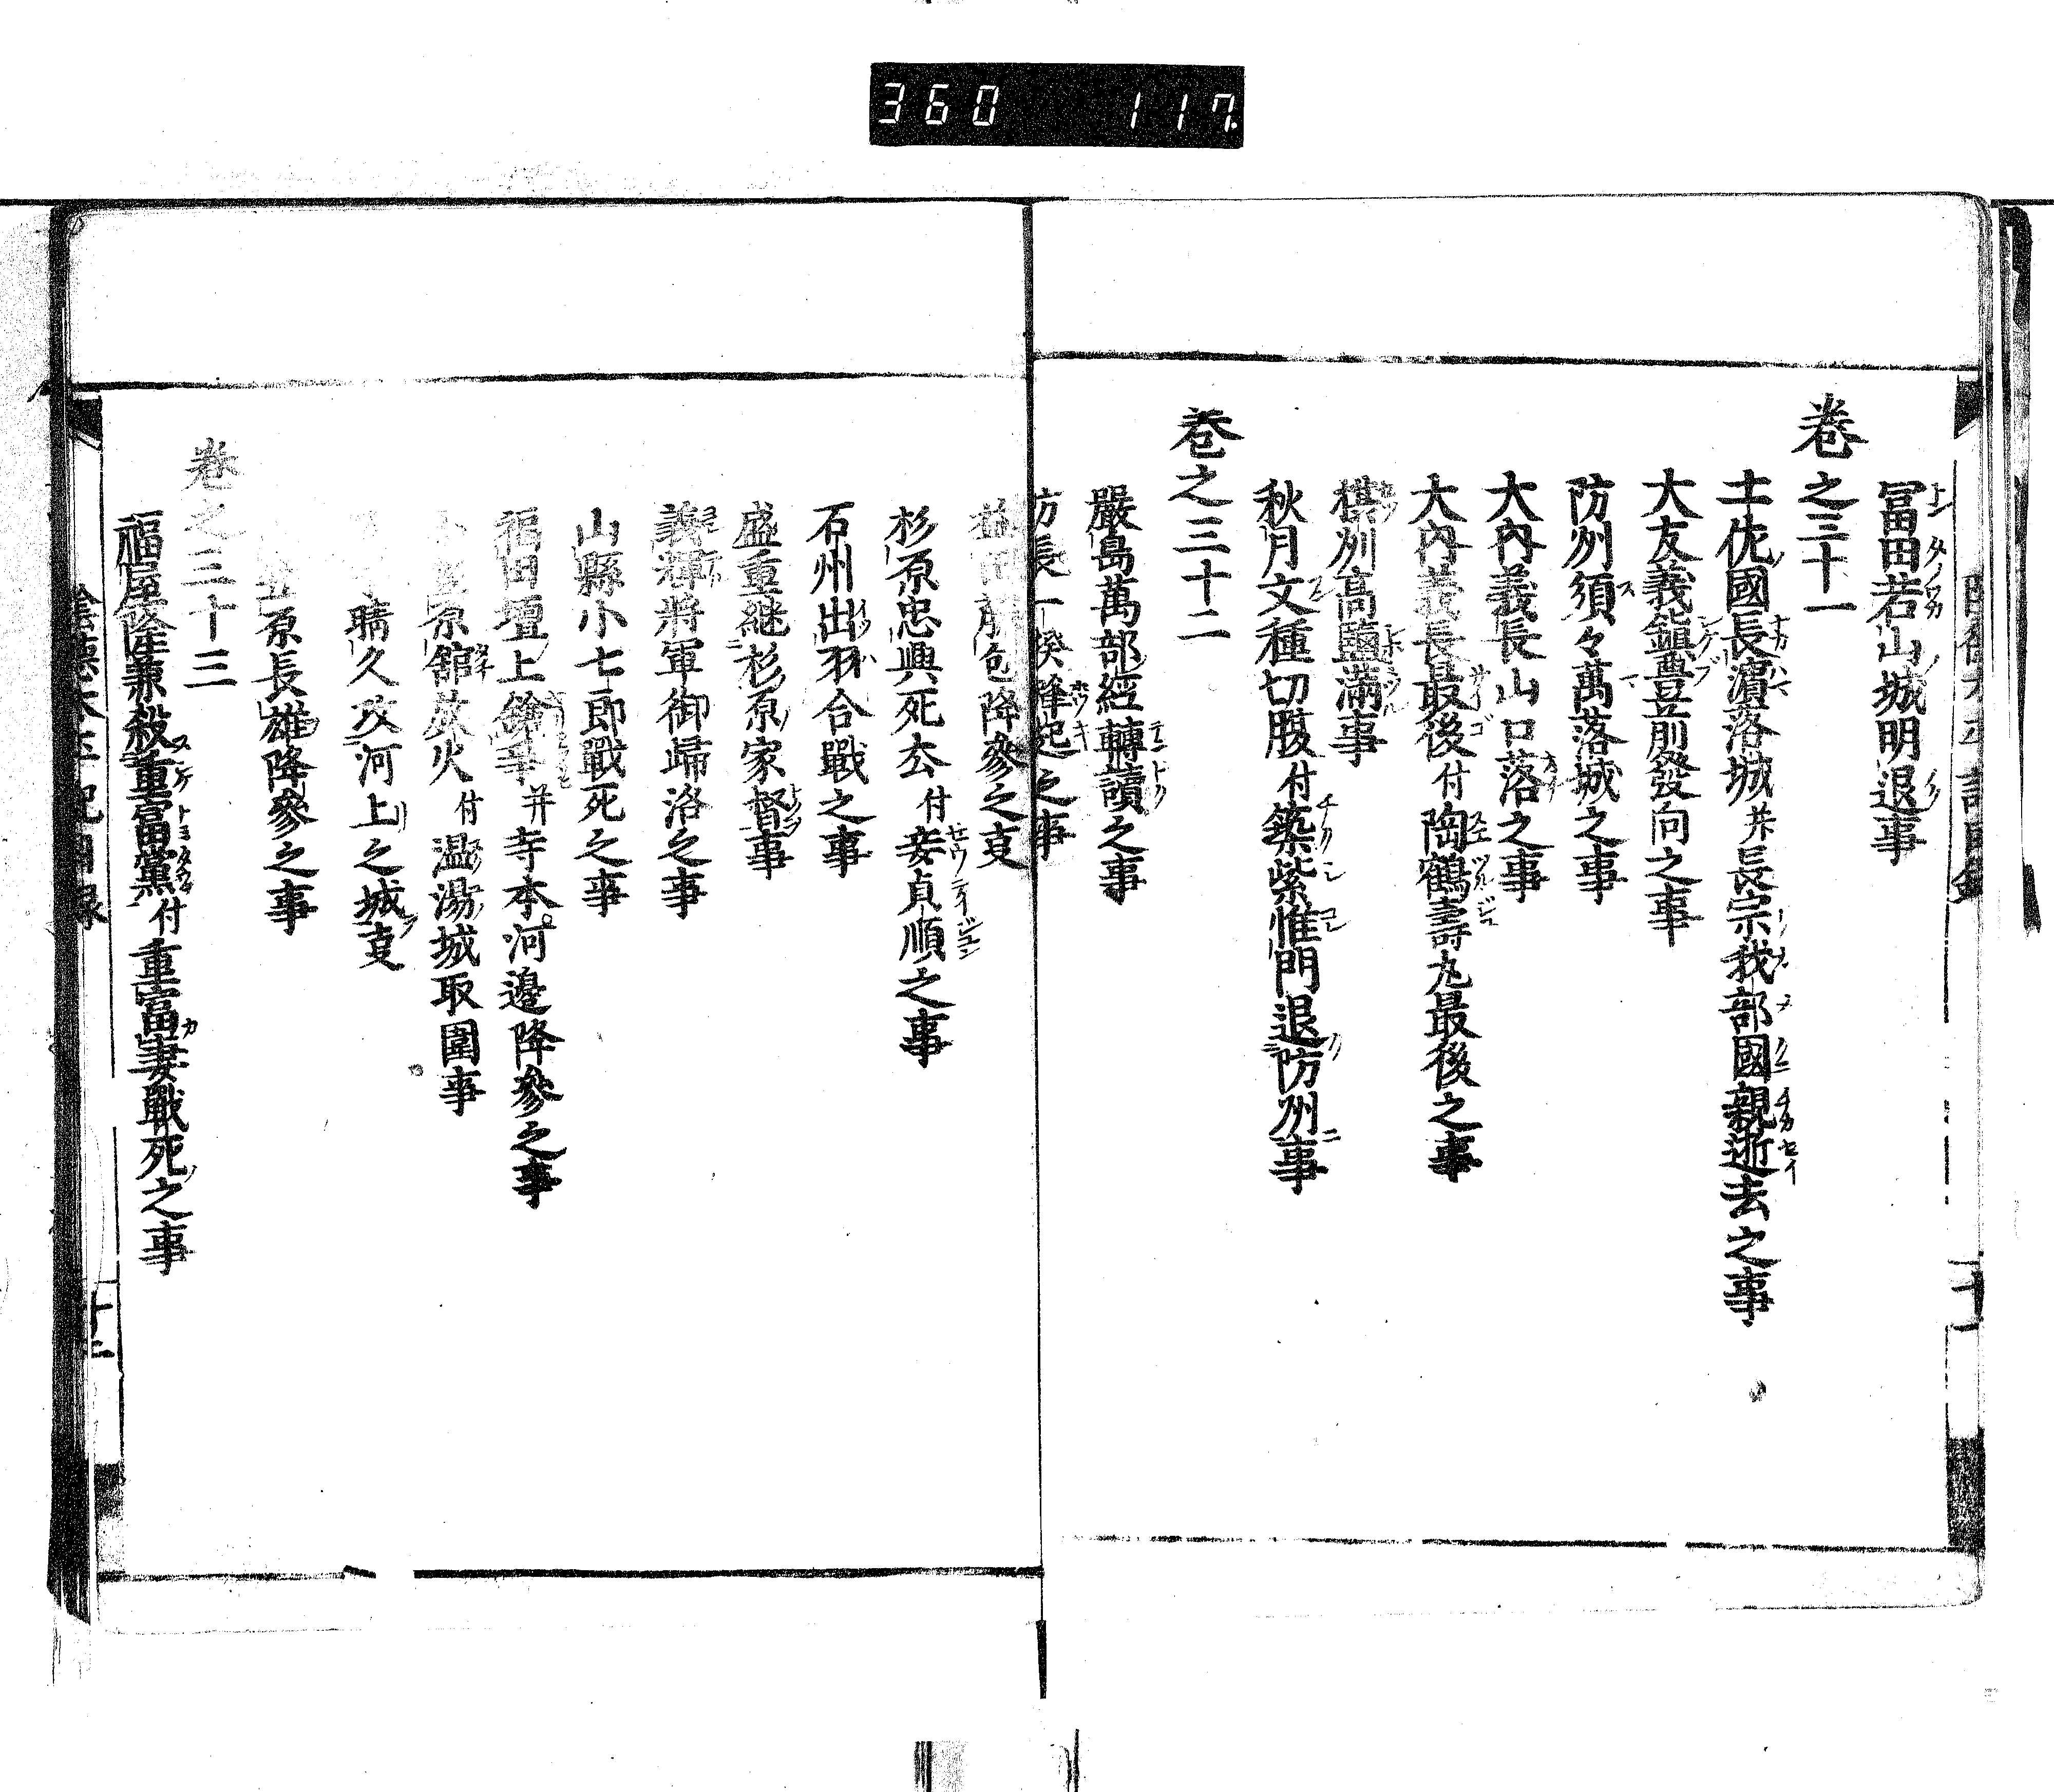 360 117
冨田若山城明退事
卷之三十一
土佐國長濵落城并長宗我部國親逝去之事
大友義鎮豊前發向之事
防州須々萬落城之事
大内義長山口落之事
大内義長最後付陶鶴壽丸最後之事
棋州高鹽滿事
秋月文種切腹付築紫惟門退防州事
卷之三十二
嚴島萬部經轉讀之事
防長一揆蜂起之事
益田藤包降參之叓
杉原忠興死去付妾貞順之事
石州出羽合戰之事
盛重継杉原家督事
義輝將軍御歸洛之事
山縣小七郎戰死之事
福田壇上鎗事并寺本河邉降參之事
原舘放火付温湯城取圍事
晴久攻河上之城叓
原長雄降參之事
卷之三十三
福屋隆兼殺重富黨付重富妻戰死之事
陰德太平記目録
十二